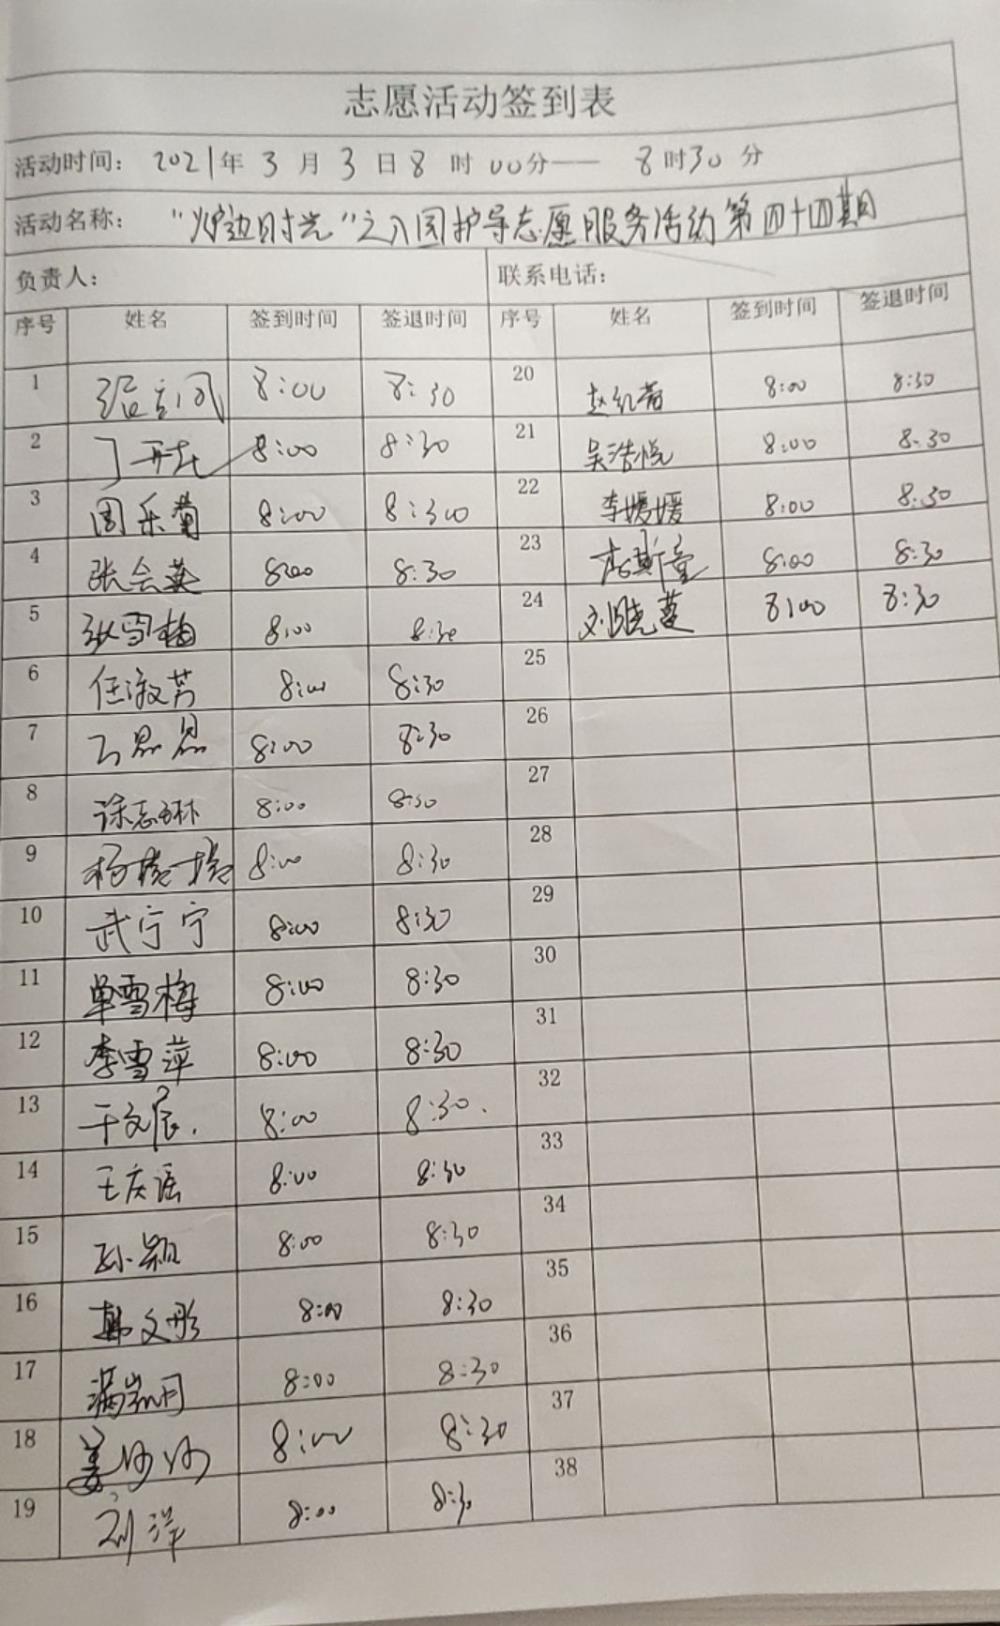 志愿活动签到表
活动时间： 2021年 3 月 3 日 8 时 00分—— 8 时30 分
活动名称： “炉边时光”之入园护导志愿服务活动第四十四期
负责人： 联系电话：
序号 姓名 签到时间 签退时间 序号 姓名 签到时间 签退时间
1 8:00 8:30 20 赵红蕾 8:00 8:30
2 8:00 8:30 21 吴浩悦 8:00 8:30
3 周乐菊 8:00 8:30 22 李媛媛 8:00 8:30
4 张会英 8:00 8:30 23 8:00 8:30
5 张雪梅 8:00 8:30 24 刘晓莲 8:00 8:30
6 任淑芳 8:00 8:30 25
7 8:00 8:30 26
8 徐志琳 8:00 8:30 27
9 杨 8:00 8:30 28
10 武宁宁 8:00 8:30 29
11 单雪梅 8:00 8:30 30
12 李雪萍 8:00 8:30 31
13 于文辰. 8:00 8:30. 32
14 王庆谣 8:00 8:30 33
15 孙颖 8:00 8:30 34
16 韩文彤 8:00 8:30 35
17 满 8:00 8:30 36
18 姜 8:00 8:30 37
19 刘洋 8:00 8:30 38